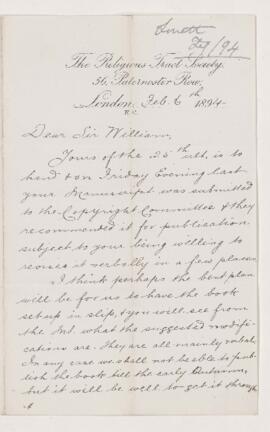 Feb/94
The Religious Tract Society,
56, Paternoster Row,
London, Feb. 6th 1894
E.C.
Dear Sir William,
Yours of the 25th ult. is to
hand & on Friday Evening last
your Manuscript was submitted
to the Copyright Committee & they
recommended it for publication
subject to your being willing to
revise it verbally in a few places.
I think perhaps the best plan
will be for us to have the book
set up in slip, & you will see from
the what the suggested modifi-
cations are. They are all mainly verbal.
In any case we shall not be able to pub-
lish the book till the early Autumn,
but it will be well to get it through